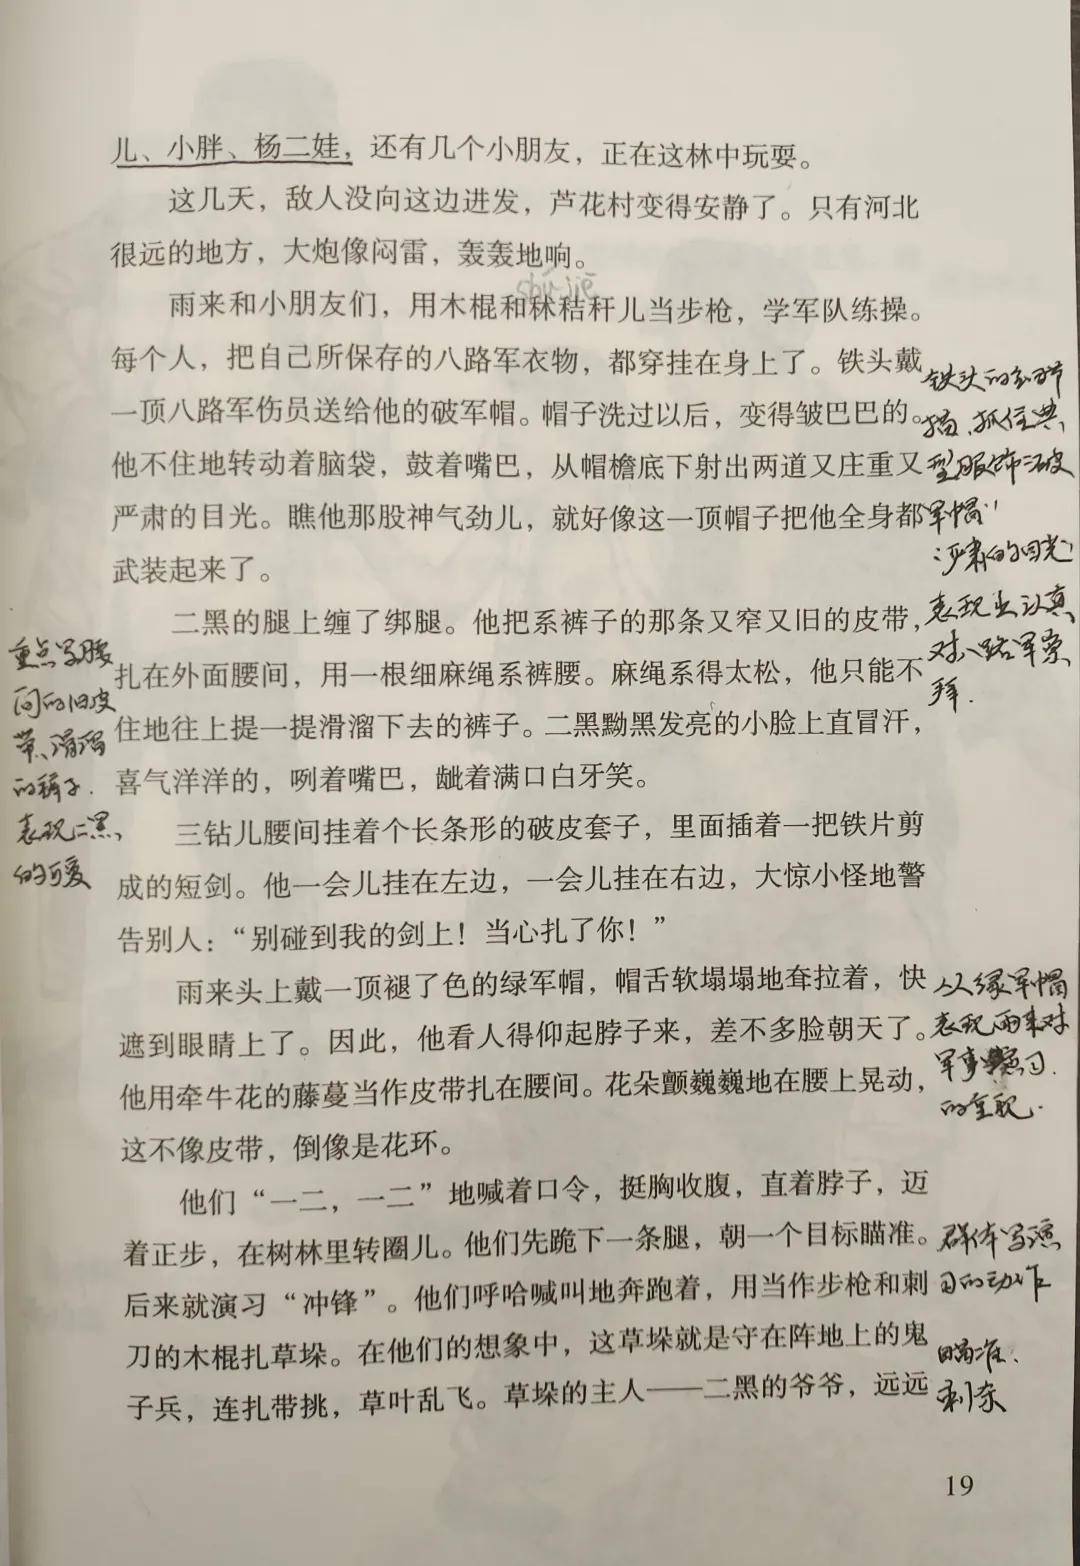 儿、小胖、杨二娃，还有几个小朋友，正在这林中玩耍。
这几天，敌人没向这边进发，芦花村变得安静了。只有河北
很远的地方，大炮像闷雷，轰轰地响。
shú jiē
雨来和小朋友们，用木棍和秫秸秆儿当步枪，学军队练操。
每个人，把自己所保存的八路军衣物，都穿挂在身上了。铁头戴
一顶八路军伤员送给他的破军帽。帽子洗过以后，变得皱巴巴的。
他不住地转动着脑袋，鼓着嘴巴，从帽檐底下射出两道又庄重又
严肃的目光。瞧他那股神气劲儿，就好像这一顶帽子把他全身都
武装起来了。
铁头的
描，抓住典
型服饰“破
军帽”
“严肃的目光”
表现出认真
对八路军崇
拜.
二黑的腿上缠了绑腿。他把系裤子的那条又窄又旧的皮带，
扎在外面腰间，用一根细麻绳系裤腰。麻绳系得太松，他只能不
住地往上提一提滑溜下去的裤子。二黑黝黑发亮的小脸上直冒汗，
喜气洋洋的，咧着嘴巴，龇着满口白牙笑。
重点写腰
间的旧皮
带、滑溜
的裤子.
表现二黑
的可爱
三钻儿腰间挂着个长条形的破皮套子，里面插着一把铁片剪
成的短剑。他一会儿挂在左边，一会儿挂在右边，大惊小怪地警
告别人：“别碰到我的剑上！当心扎了你！”
雨来头上戴一顶褪了色的绿军帽，帽舌软塌塌地耷拉着，快
遮到眼睛上了。因此，他看人得仰起脖子来，差不多脸朝天了。
他用牵牛花的藤蔓当作皮带扎在腰间。花朵颤巍巍地在腰上晃动，
这不像皮带，倒像是花环。
从绿军帽
表现雨来对
军事演习.
的重视.
他们“一二，一二”地喊着口令，挺胸收腹，直着脖子，迈
着正步，在树林里转圈儿。他们先跪下一条腿，朝一个目标瞄准。
后来就演习“冲锋”。他们呼哈喊叫地奔跑着，用当作步枪和刺
刀的木棍扎草垛。在他们的想象中，这草垛就是守在阵地上的鬼
子兵，连扎带挑，草叶乱飞。草垛的主人——二黑的爷爷，远远
群体写演
习的动作
瞄准.
刺杀
19